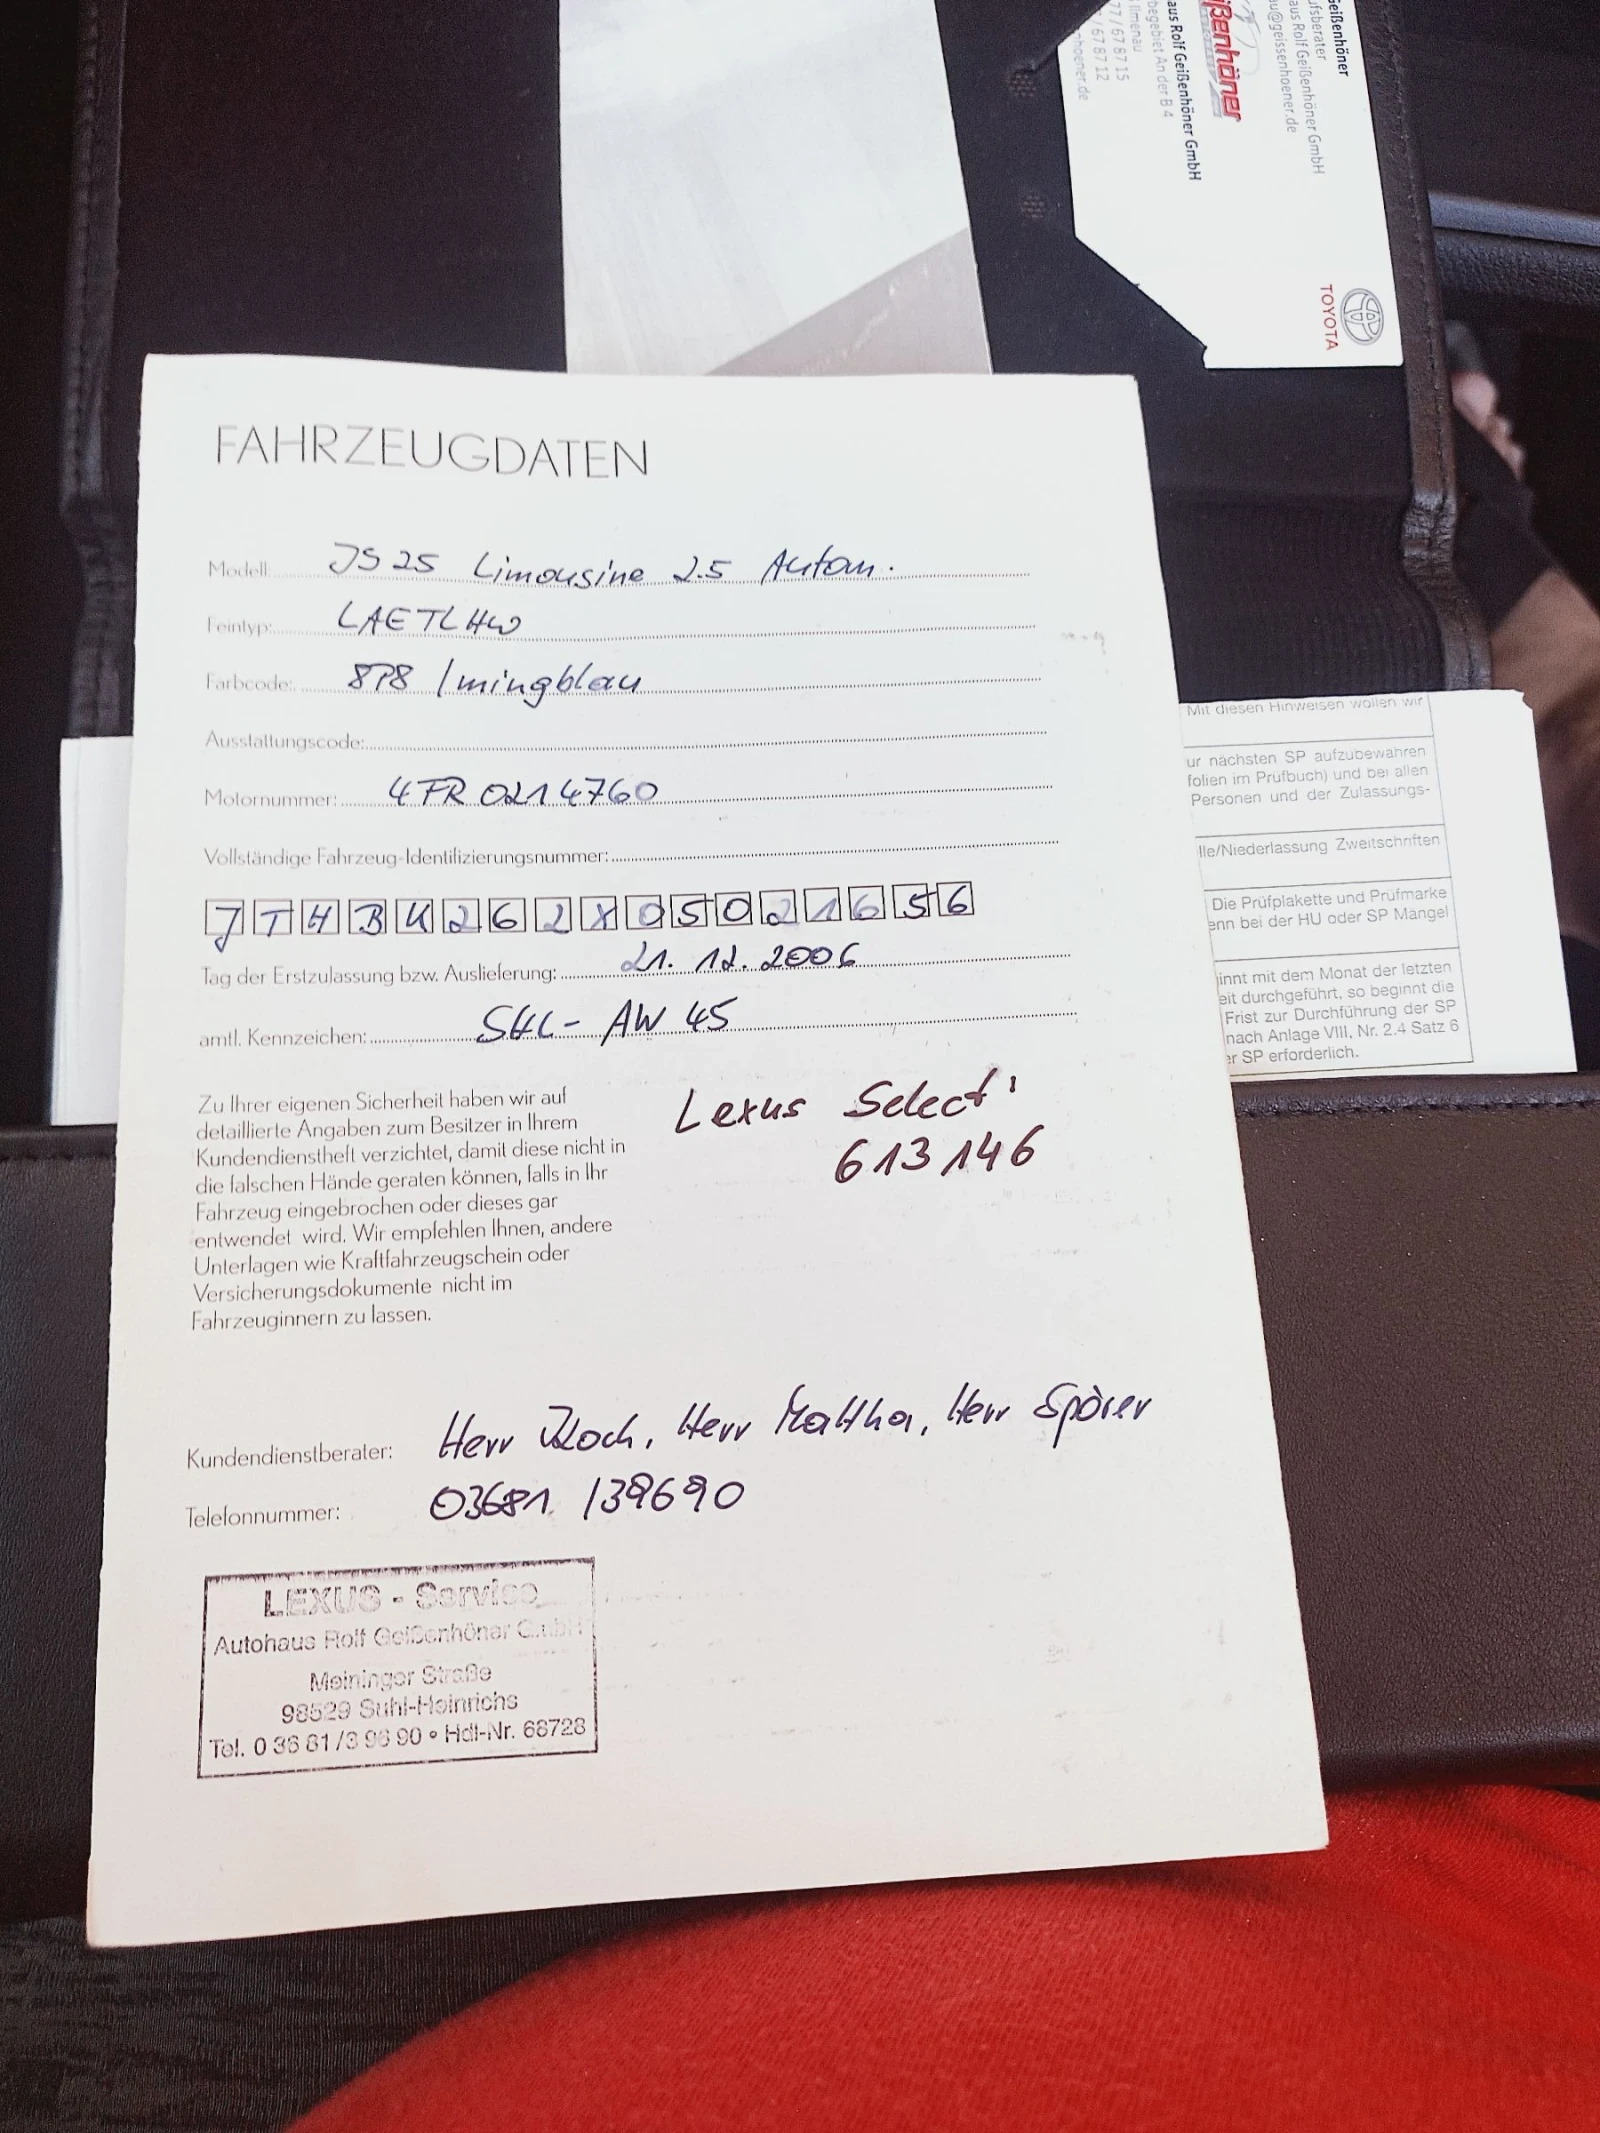 Geißenhöner
aus Rolf Geißenhöner GmbH
geissenhoener.de
ißenhöner
aus Rolf Geißenhöner GmbH
begebiet An der B 4
Ilmenau
77 / 67 87 15
/ 67 87 12
-hoener.de
TOYOTA
FAHRZEUGDATEN
Modell: JS 25 Limousine 2.5 Autom.
Feintyp: LAETLHW
Farbcode: 8P8 / mingblau
Ausstattungscode:
Motornummer: 4FR 0214760
Vollständige Fahrzeug-Identifizierungsnummer:
JTHBK262X05021656
Tag der Erstzulassung bzw. Auslieferung: 21. 12. 2006
amtl. Kennzeichen: SHL - AW 45
Zu Ihrer eigenen Sicherheit haben wir auf
detaillierte Angaben zum Besitzer in Ihrem
Kundendienstheft verzichtet, damit diese nicht in
die falschen Hände geraten können, falls in Ihr
Fahrzeug eingebrochen oder dieses gar
entwendet wird. Wir empfehlen Ihnen, andere
Unterlagen wie Kraftfahrzeugschein oder
Versicherungsdokumente nicht im
Fahrzeuginnern zu lassen.
Lexus Select:
613146
Kundendienstberater: Herr Koch, Herr Mattha, Herr Spörer
Telefonnummer: 03681 / 39690
LEXUS - Service
Autohaus Rolf Geißenhöner GmbH
Meininger Straße
98529 Suhl-Heinrichs
Tel. 0 36 81 / 3 96 90 • Hdl-Nr. 68728
Mit diesen Hinweisen wollen wir
ur nächsten SP aufzubewahren
folien im Prüfbuch) und bei allen
Personen und der Zulassungs-
lle/Niederlassung Zweitschriften
Die Prüfplakette und Prüfmarke
enn bei der HU oder SP Mängel
innt mit dem Monat der letzten
eit durchgeführt, so beginnt die
Frist zur Durchführung der SP
nach Anlage VIII, Nr. 2.4 Satz 6
er SP erforderlich.